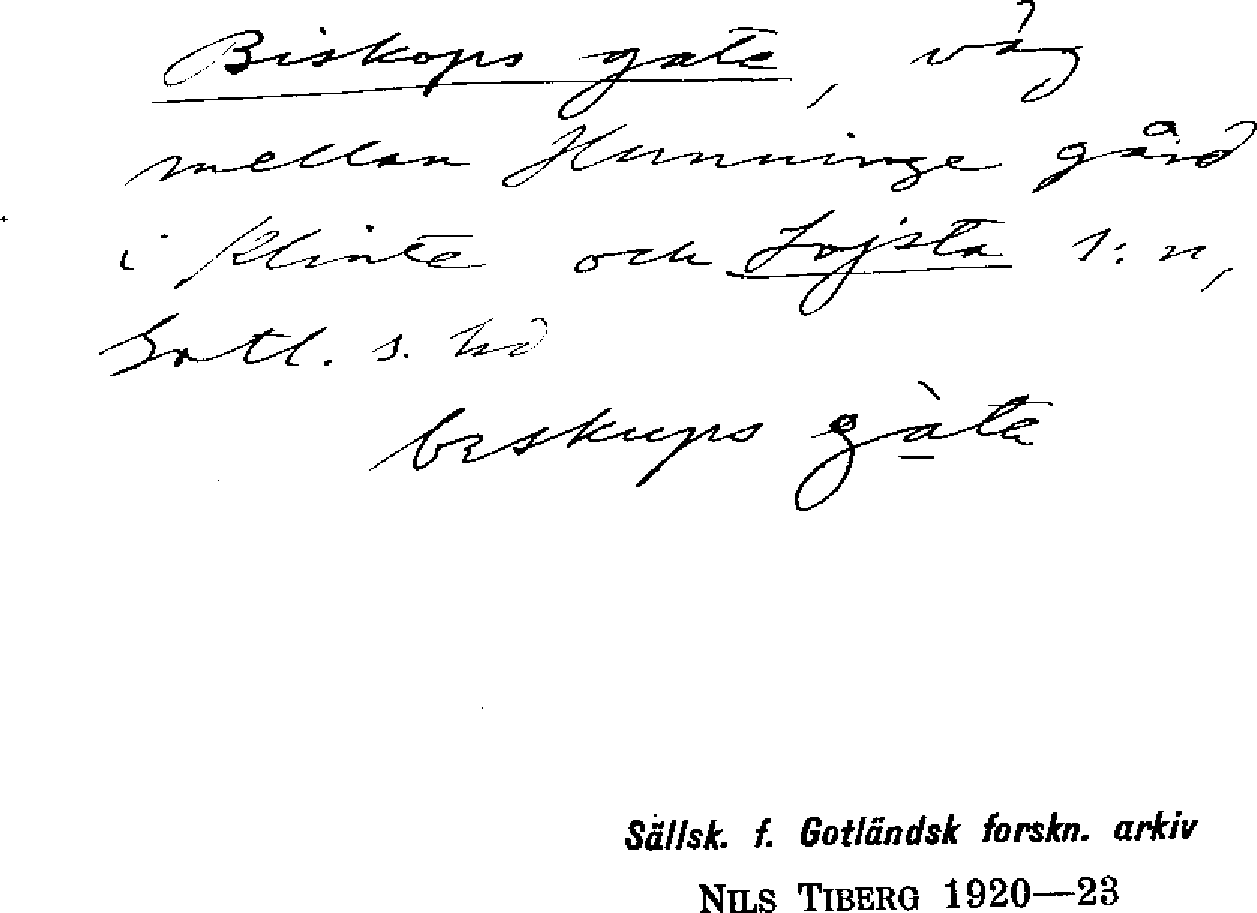 Biskops gate, väg
mellan Hunninge gård
i Klinte och Lojsta s:n,
Gotl. s. hd
beskups gàta
Sällsk. f. Gotländsk forskn. arkiv
NILS TIBERG 1920—23